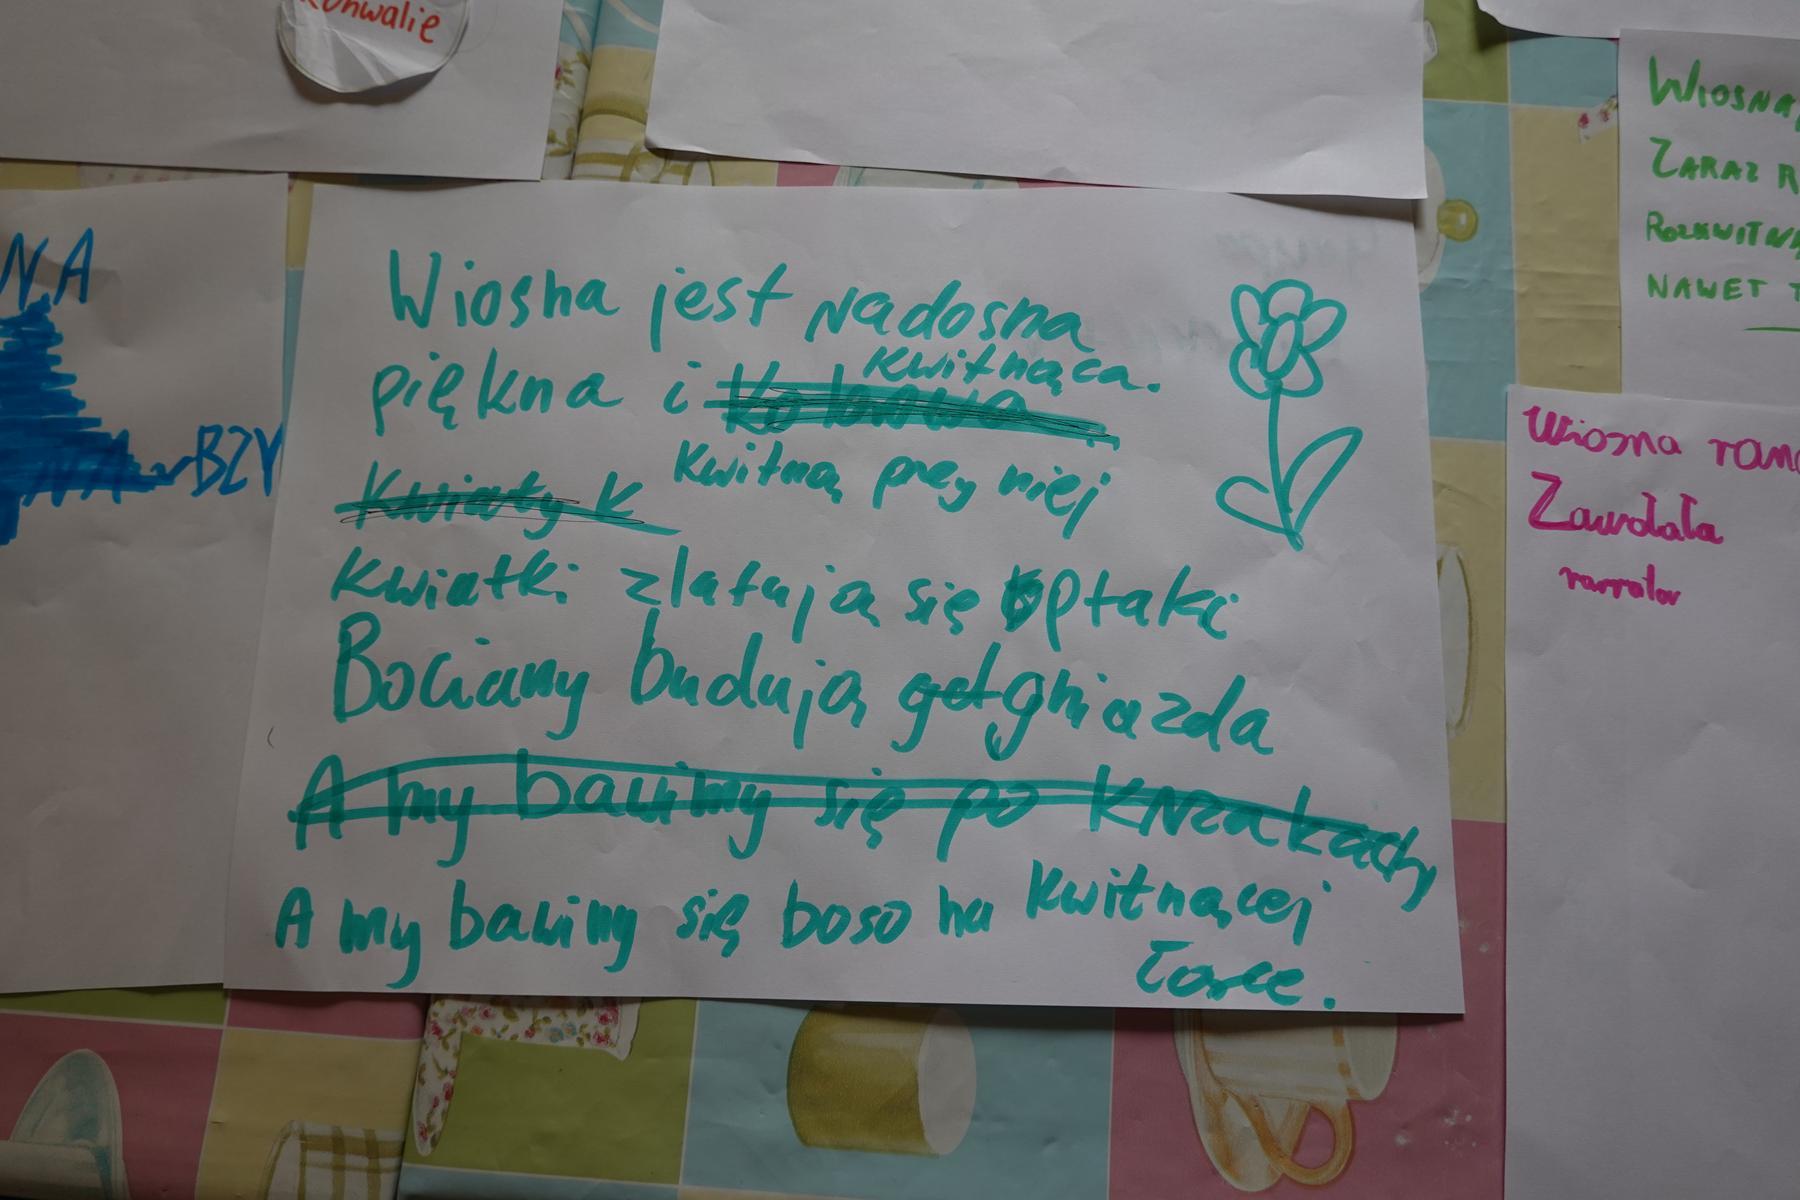 Konwalie
NA
NA BZY
Wiosna jest radosna
piękna i kwitnąca.
Kwiaty k
kwitną przy niej
kwiatki zlatują się ptaki
Bociany budują gniazda
A my bawimy się po krzakach
A my bawimy się boso na kwitnącej
Łące.
WIOSNA
ZARAZ R
ROZKWITNĄ
NAWET T
Wiosna rano
Zawołała
narrator